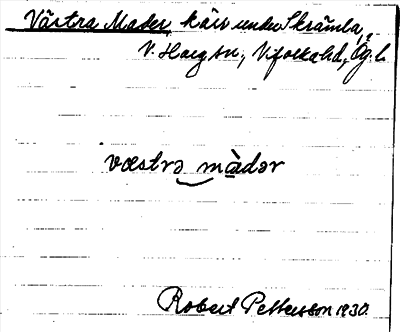 Västra Mader, kärr under Skrämla,
V. Harg sn, Vifolka hd, Ög. l.
væstrə màdər
Robert Pettersson 1930.